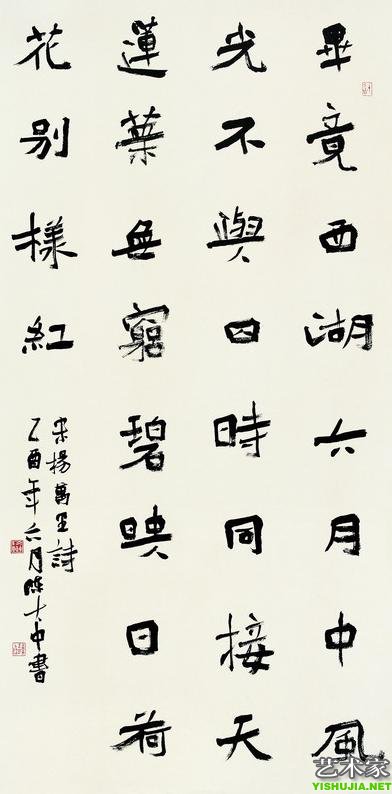 畢竟西湖六月中風
光不與四時同接天
蓮葉無窮碧映日荷
花别樣紅
宋楊萬里詩
乙酉年六月陳大中書
艺术家
YISHUJIA.NET